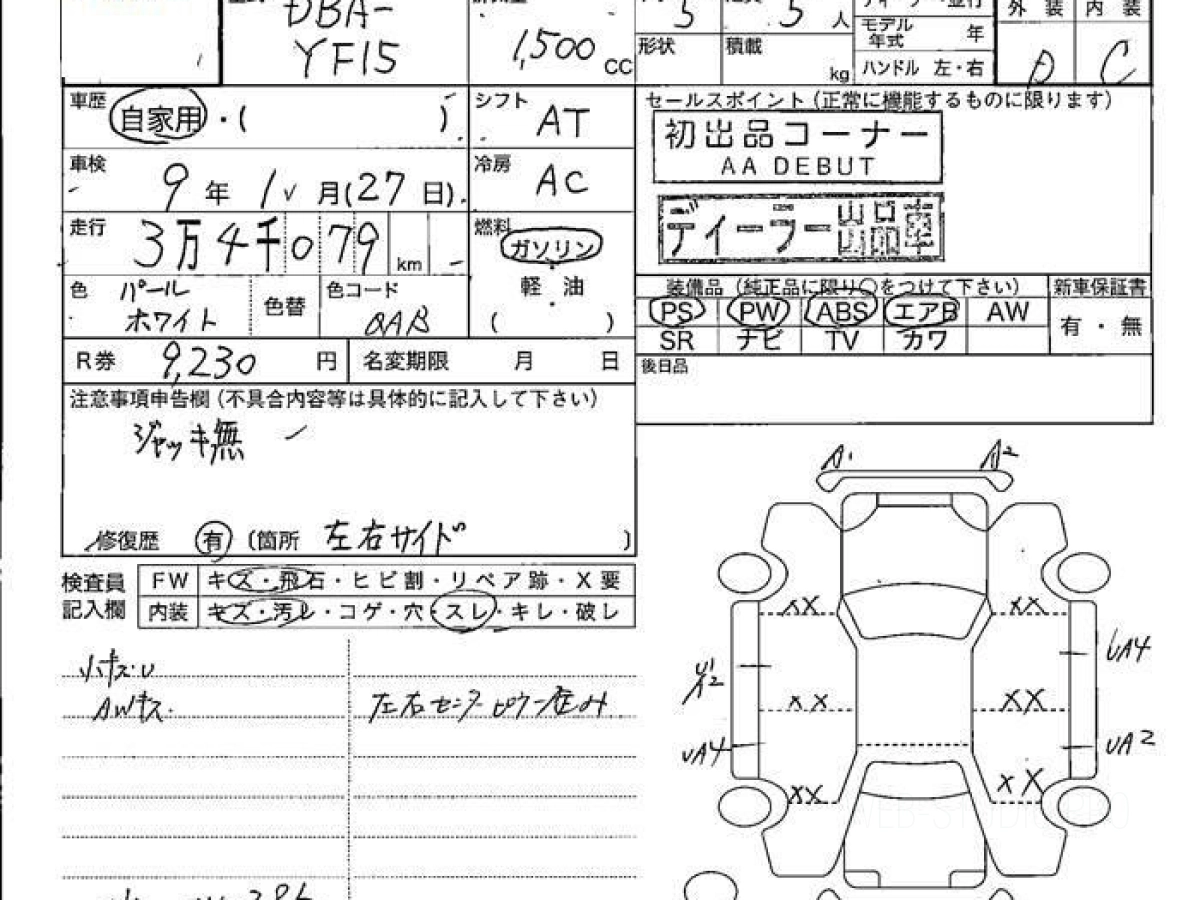 DBA-
YF15
1,500 CC
5
5 人
形状 積載 kg
モデル年式 年
ハンドル 左・右
外装 内装
C
車歴 自家用・( )
シフト AT
車検 9 年 1 月(27 日)
冷房 AC
走行 3万4千079 km
燃料 ガソリン
軽油
( )
色 パール
ホワイト
色替
色コード QAB
R券 9,230 円
名変期限 月 日
セールスポイント(正常に機能するものに限ります)
初出品コーナー
AA DEBUT
ディーラー出品車
装備品(純正品に限り○をつけて下さい)
新車保証書
PS PW ABS エアB AW
SR ナビ TV カワ
有・無
後日品
注意事項申告欄(不具合内容等は具体的に記入して下さい)
ジャッキ無
修復歴 有 (箇所 左右サイド )
検査員
記入欄
FW キズ・飛石・ヒビ割・リペア跡・X要
内装 キズ・汚レ・コゲ・穴・スレ・キレ・破レ
小キズ・U
AWキズ・
左右センターピラー歪み
A1 A2
XX XX
U1
A2
UA4
XX XX
UA4
UA2
XX XX